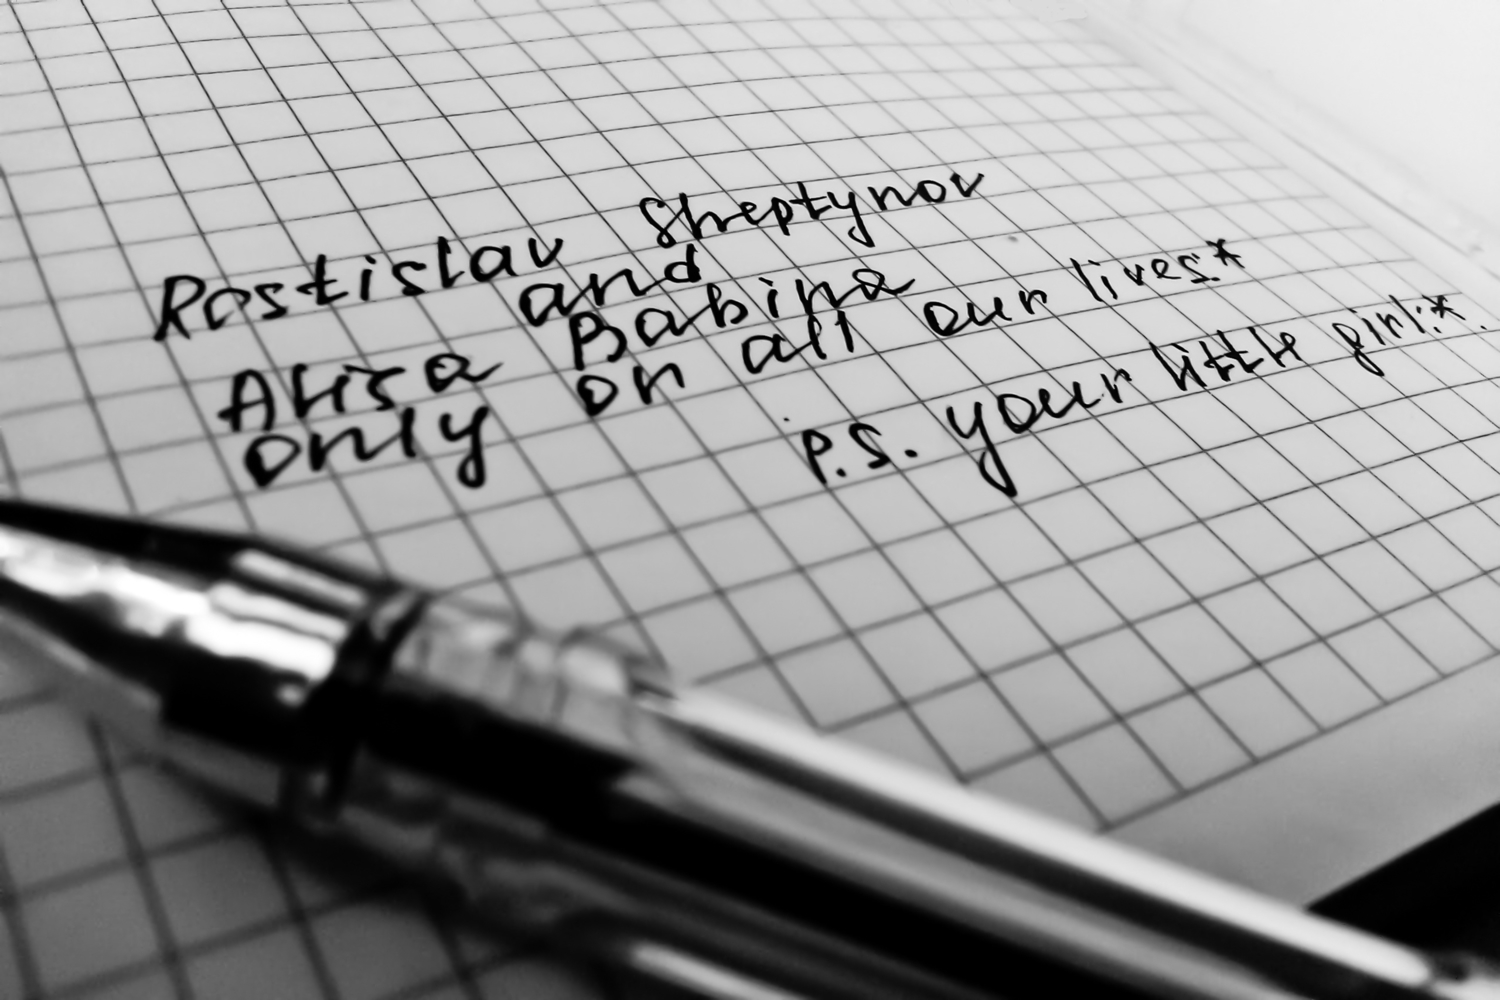 Rostislav Shreptynov
and
Alisa Babina
only on all our lives:*
p.s. your little girl:*.